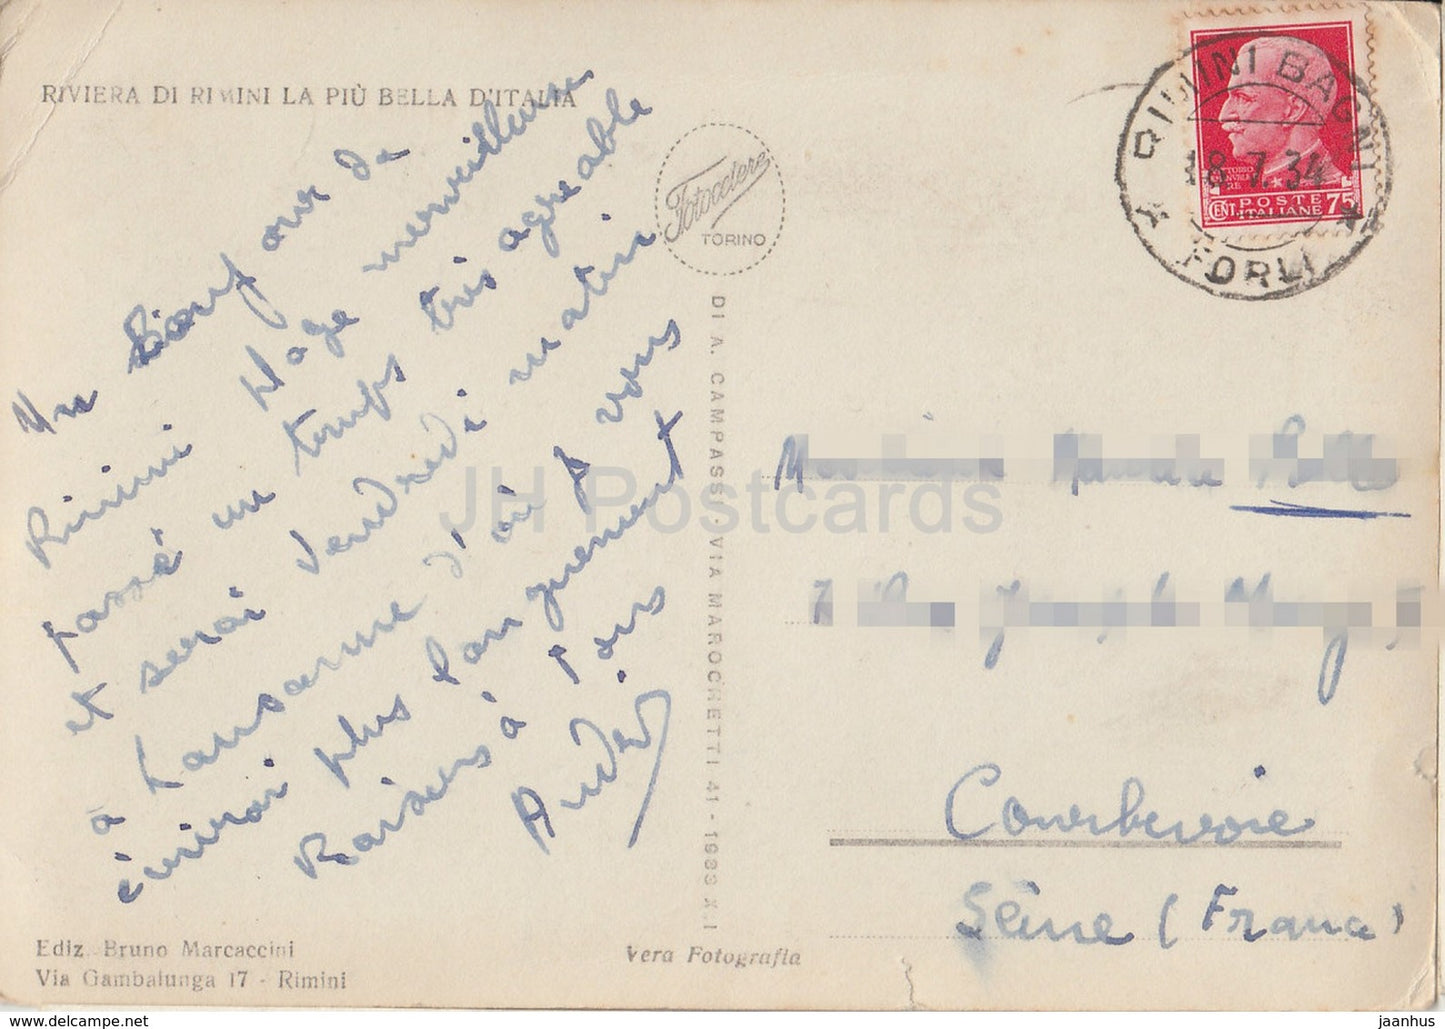 RIVIERA DI RIMINI LA PIÙ BELLA D'ITALIA
Un Bonjour de
Rimini plage merveilleuse
passé un temps très agréable
et serai vendredi matin
à Lausanne d'où je vous
écrirai plus longuement
Baisers à tous
André
Fotocelere
TORINO
DI A. CAMPASSI - VIA MAROCHETTI 41 - 1933 X.I
Ediz. Bruno Marcaccini
Via Gambalunga 17 - Rimini
Vera Fotografia
RIMINI BAGNI
18.7.34
FORLI
POSTE
ITALIANE
CENT. 75
Courbevoie
Seine (France)
JH Postcards
www.delcampe.net
jaanhus